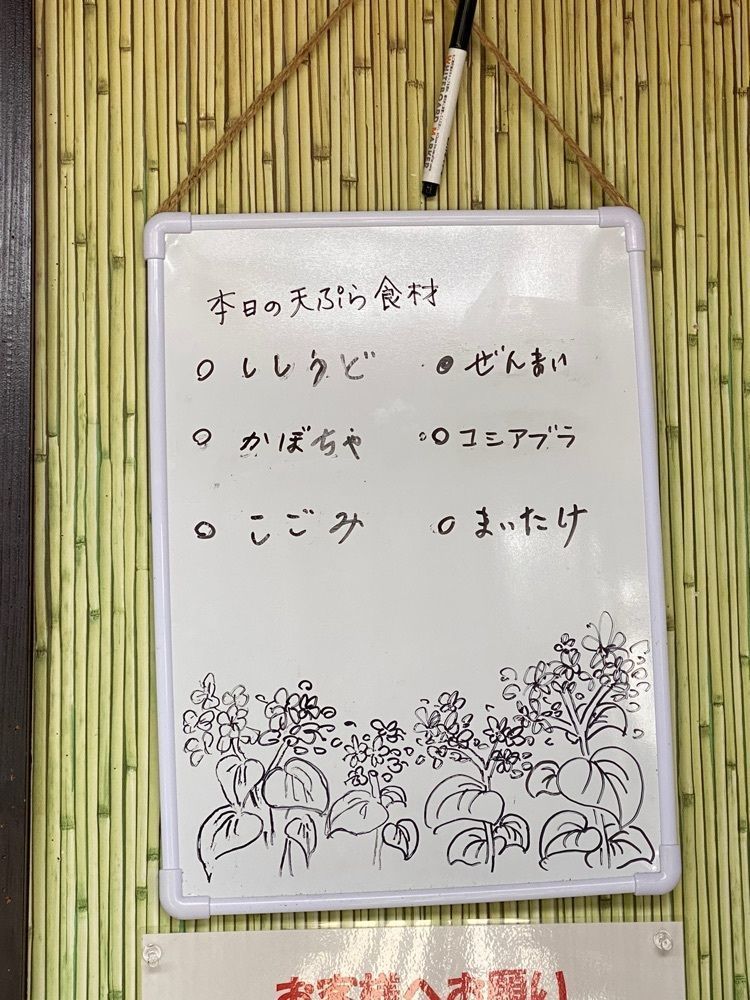 WHITEBOARD MARKER
本日の天ぷら食材
○ ししうど
● ぜんまい
○ かぼちゃ
○ コシアブラ
○ こごみ
○ まいたけ
お客様へお願い